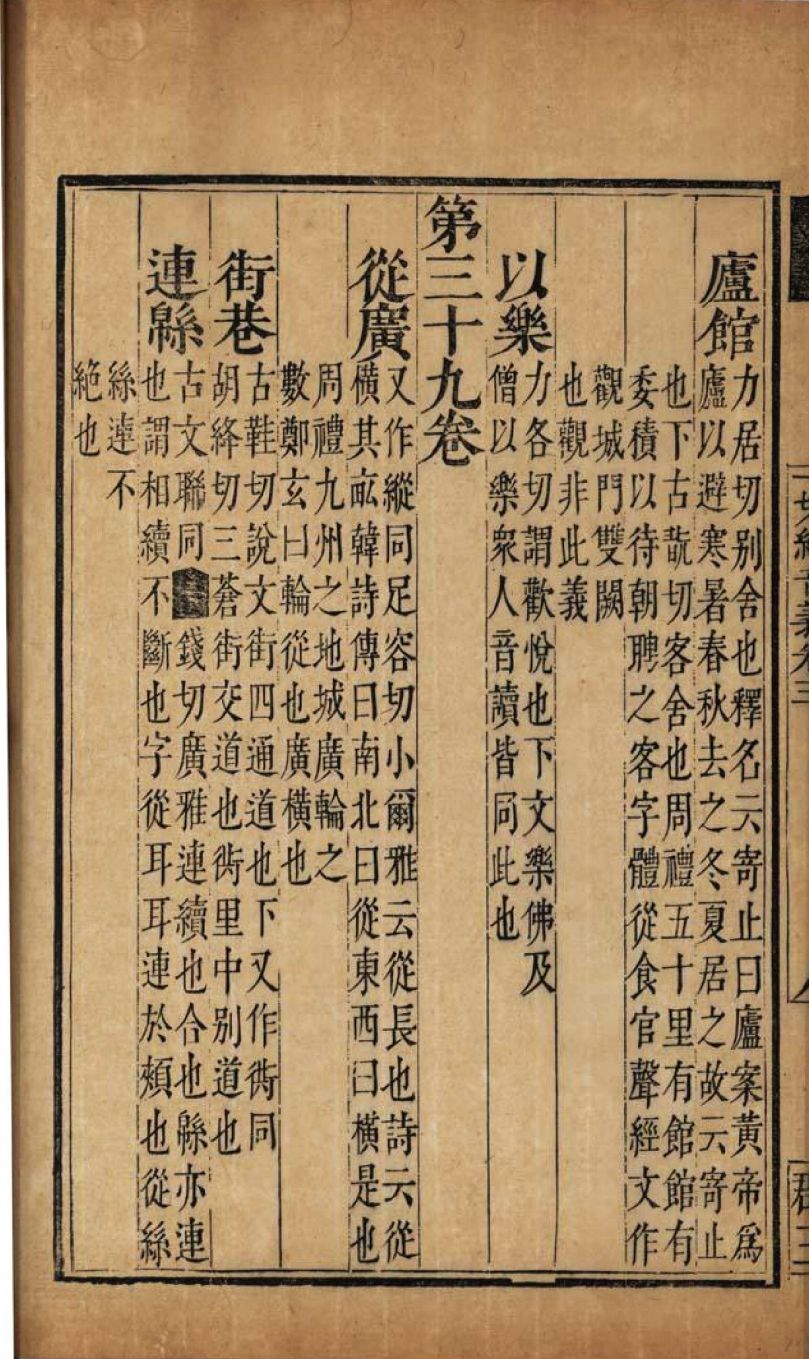 廬館力居切别舍也釋名云寄止曰廬案黃帝爲
廬以避寒暑春秋去之冬夏居之故云寄止
也下古翫切客舍也周禮五十里有館館有
委積以待朝聘之客字體從食官聲經文作
觀城門雙闕
也觀非此義
以樂力各切謂歡悅也下文樂佛及
僧以樂衆人音讀皆同此也
第三十九卷
從廣又作縱同足容切小爾雅云從長也詩云從
橫其畝韓詩傳曰南北曰從東西曰橫是也
周禮九州之地城廣輪之
數鄭玄曰輪從也廣橫也
街巷古鞋切說文街四通道也下又作衖同
胡絳切三蒼街交道也衖里中别道也
連緜古文聯同錢切廣雅連續也合也緜亦連
也謂相續不斷也字從耳耳連於頰也從絲
絲連不
絕也